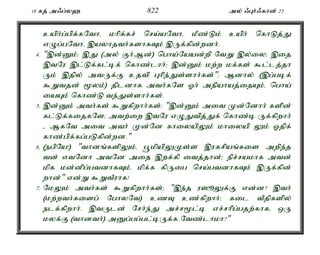 18 கத் அஃப்லஹ 822 அல் ஃபுர்கான் 25
உயிர்ப்பிக்கவோ, மரிக்கச் செய்யவோ, மீண்டும் உயிர் கொடுத்து
எழுப்பவோ, இயலாதவர்களாகவும் இருக்கின்றனர்.
4. "இன்னும்: இது (அல் குர்ஆன்) பொய்யேயன்றி வேறு இல்லை; இதை
இவரே இட்டுக்கட்டிக் கொண்டார்; இன்னும் மற்ற மக்கள் கூட்டத்தா
ரும் இதில் அவருக்கு உதவி புரிந்துள்ளார்கள்": ஆனால் (இப்படிக்
கூறுவதன் மூலம்) திடனாக அவர்களே ஓர் அநியாயத்தையும், பொய்
யையும் கொண்டு வந்துள்ளார்கள்.
5. இன்னும் அவர்கள் கூறுகிறார்கள்: "இன்னும் அவை முன்னோர் களின்
கட்டுக்கதைகளே; அவற்றை இவரே எழுதுவித்துக் கொண்டி ருக்கிறார்
- ஆகவே அவை அவர் முன்னே காலையிலும் மாலையி லும் ஓதிக்
காண்பிக்கப்படுகின்றன."
6. (நபியே!) "வானங்களிலும், பூமியிலுமுள்ள இரகசியங்களை அறிந்த
வன் எவனோ அவனே அதை இறக்கி வைத்தான்; நிச்சயமாக அவன்
மிக மன்னிப்பவனாகவும், மிக்க கிருபை செய்பவனாகவும் இருக்கின்
றான்" என்று கூறுவீராக!
7. மேலும் அவர்கள் கூறுகிறார்கள்; "இந்த ரஸூலுக்கு என்ன? இவர்
(மற்றவர்களைப் போலவே) உணவு உண்கிறார்; கடை வீதிகளில்
நடக்கிறார். இவருடன் சேர்ந்து அச்சமூட்டி எச்சரிப்பதற்காக, ஒரு
மலக்கு (வானவர்) அனுப்பப்பட்டிருக்க வேண்டாமா?"